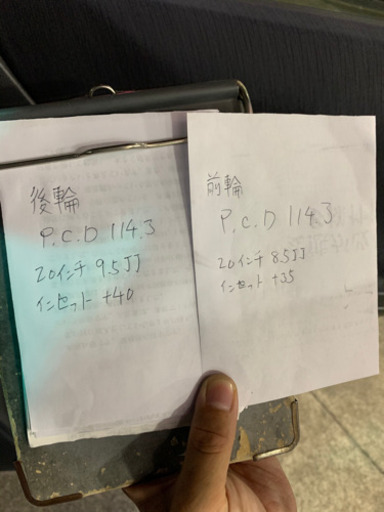 後輪
P.C.D 114.3
20インチ 9.5JJ
インセット +40
前輪
P.C.D 114.3
20インチ 8.5JJ
インセット +35